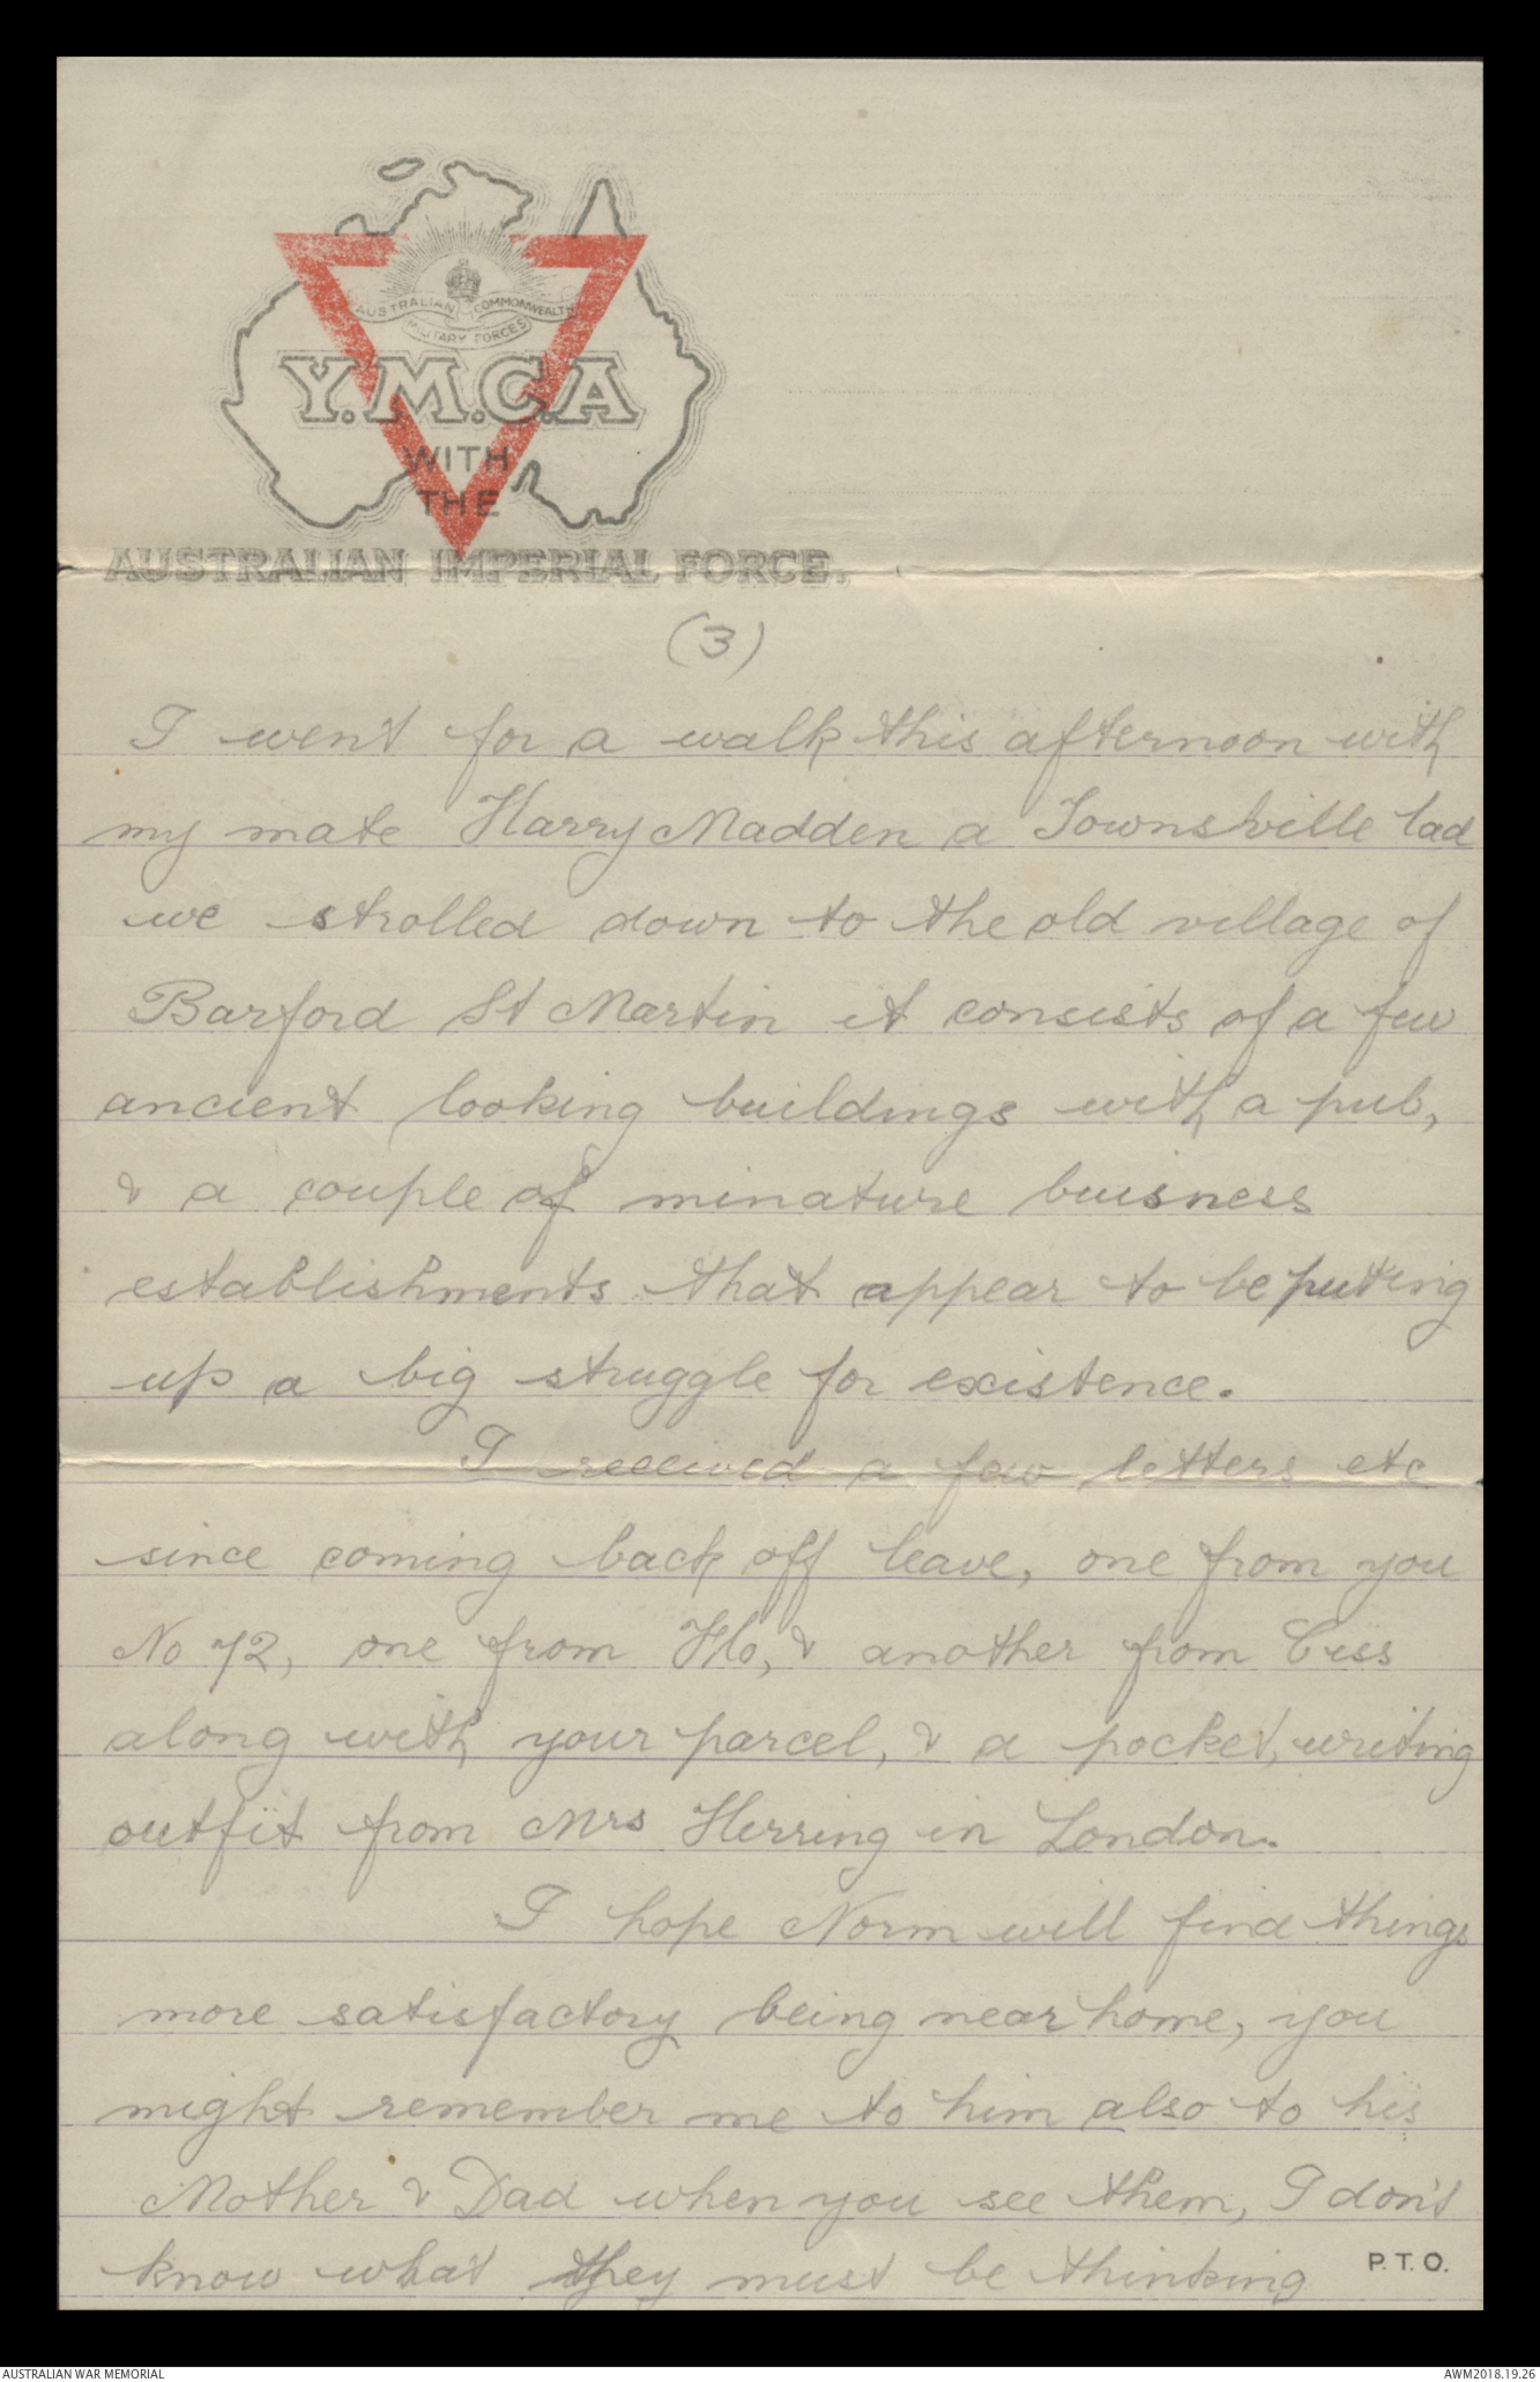 AUSTRALIAN COMMONWEALTH
MILITARY FORCES
Y.M.C.A
WITH
THE
AUSTRALIAN IMPERIAL FORCE.
(3)
I went for a walk this afternoon with
my mate Harry Madden a Townsville lad
we strolled down to the old village of
Barford St Martin it consists of a few
ancient looking buildings with a pub,
& a couple of minature buisness
establishments that appear to be puting
up a big struggle for existence.
I received a few letters etc
since coming back off leave, one from you
No 72, one from Flo, & another from Ciss
along with your parcel, & a pocket, writing
outfit from Mrs Herring in London.
I hope Norm will find things
more satisfactory being near home, you
might remember me to him also to his
Mother & Dad when you see them, I don't
know what they must be thinking
P.T.O.
AUSTRALIAN WAR MEMORIAL
AWM2018.19.26